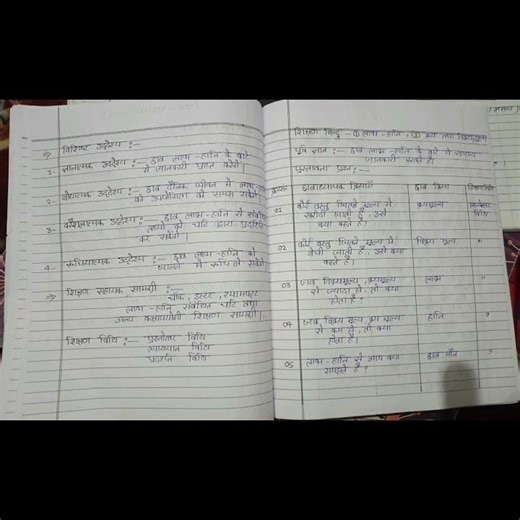 विशिष्ट उद्देश्य :—
1- ज्ञानात्मक उद्देश्य :— छात्र लाभ-हानि के बारे
में जानकारी प्राप्त करेंगे।
2- बोधात्मक उद्देश्य :— छात्र दैनिक जीवन में लाभ-हानि
की उपयोगिता को समझ सकेंगे।
3- कौशलात्मक उद्देश्य :— छात्र लाभ-हानि से संबंधित
तथ्यों को चार्ट द्वारा प्रदर्शित
कर सकेंगे।
4- रूचियात्मक उद्देश्य :— छात्र लाभ-हानि को
में रूचि ले सकेंगे।
⇒ शिक्षण सहायक सामग्री :—
चॉक, डस्टर, श्यामपट्ट
लाभ-हानि संबंधित चार्ट तथा
अन्य कक्षोपयोगी शिक्षण सामग्री।
शिक्षण विधि :— प्रश्नोत्तर विधि
व्याख्यान विधि
प्रदर्शन विधि
शिक्षण बिन्दु - ① लाभ-हानि, ② क्रय तथा विक्रयमूल्य
पूर्व ज्ञान :— छात्र लाभ-हानि के बारे में सामान्य
जानकारी रखते हैं।
प्रस्तावना प्रश्न :—
छात्राध्यापक क्रियाएँ छात्र क्रिया शिक्षणविधि
01 कोई वस्तु जितने मूल्य में क्रयमूल्य प्रश्नोत्तर
खरीदी जाती है, उसे विधि
क्या कहते हैं?
02 कोई वस्तु जितने मूल्य में विक्रय मूल्य "
बेची जाती है, उसे क्या
कहते हैं?
03 जब विक्रय मूल्य, क्रयमूल्य लाभ "
से ज्यादा हो, तो क्या
होता है?
04 जब विक्रय मूल्य, क्रय मूल्य हानि "
से कम हो, तो क्या
होता है?
05 लाभ-हानि से आप क्या छात्र मौन "
समझते हैं?